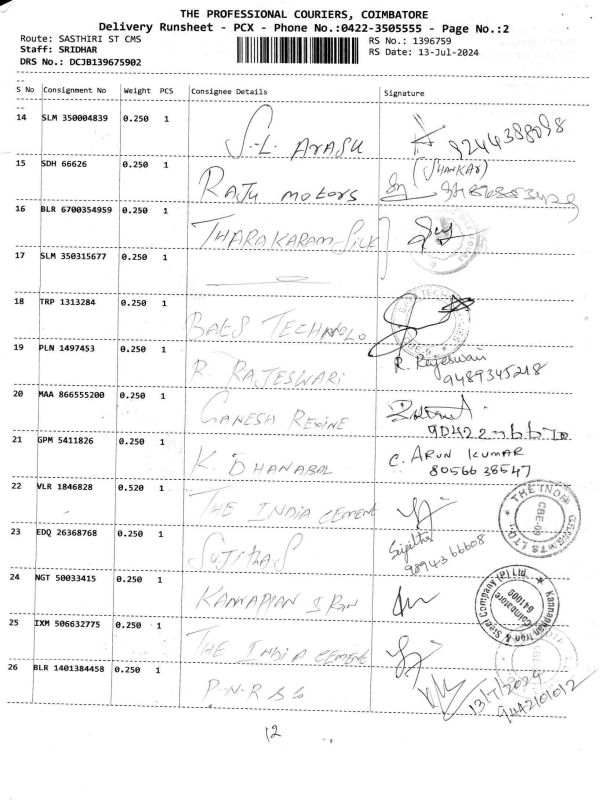 THE PROFESSIONAL COURIERS, COIMBATORE
Delivery Runsheet - PCX - Phone No.:0422-3505555 - Page No.:2
Route: SASTHIRI ST CMS RS No.: 1396759
Staff: SRIDHAR RS Date: 13-Jul-2024
DRS No.: DCJB139675902
S No Consignment No Weight PCS Consignee Details Signature
14 SLM 350004839 0.250 1 S.L. Arasu 9244388098
15 SDH 66626 0.250 1 Raju motors (SHANKAR)
16 BLR 6700354959 0.250 1 THARAKARAM SILK
17 SLM 350315677 0.250 1
18 TRP 1313284 0.250 1 BAES TECHNOLO
19 PLN 1497453 0.250 1 R. RAJESWARI R. Rajeswari 9489345218
20 MAA 866555200 0.250 1 GANESH REGINE
21 GPM 5411826 0.250 1 K. DHANABAL C. ARUN KUMAR 8056638547
22 VLR 1846828 0.520 1 THE INDIA CEMENT
CBE-09
23 EDQ 26368768 0.250 1 SUJITHA S 9894366608
24 NGT 50033415 0.250 1 KANNAPPAN IRON
Kannappan Iron & Steel Company (P) Ltd.
Coimbatore
641009
25 IXM 506632775 0.250 1 THE INDIA CEMENT
26 BLR 1401384458 0.250 1 P.N.R & Co 13/7/2024
9442101012
12